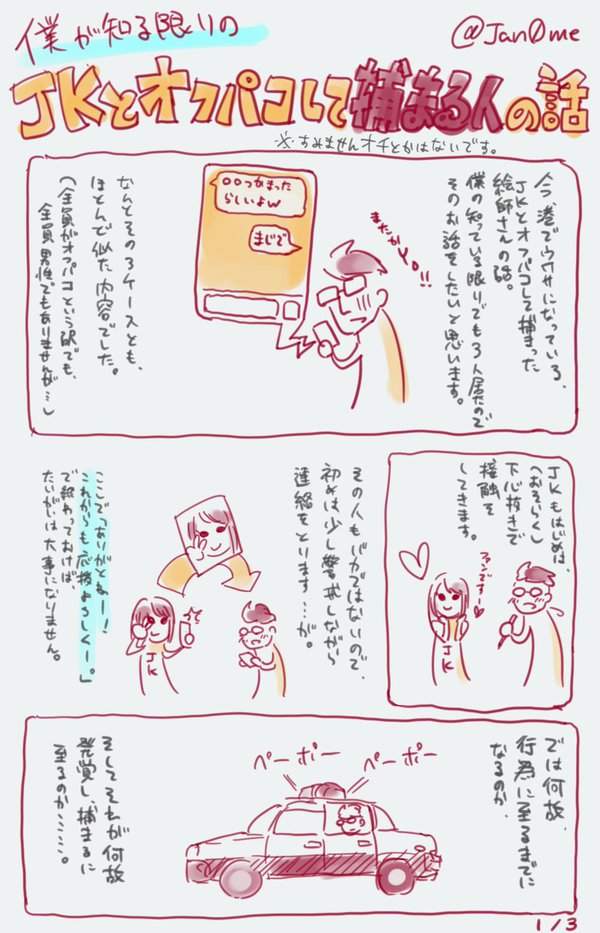 僕が知る限りの
@Jan0me
JKとオフパコして捕まる人の話
※すみませんオチとかはないです。
今、巷でウワサになっている、
JKとオフパコして捕まった
絵師さんの話。
僕の知っている限りでも3人居たので
そのお話をしたいと思います。
まただかよ!!
○○つかまった
らしいよw
まじで
なんとその3ケースとも、
ほとんど似た内容でした。
(全員がオフパコという訳でも、
全員男性でもありませんが…)
JKもはじめは、
(おそらく)
下心抜きで
接触を
してきます。
ファンですー
JK
その人もバカではないので、
初めは少し警戒しながら
連絡をとります…が。
JK
ここで「ありがとねー！
これからも応援よろしくー。」
で終わっておけば、
たいがいは大事になりません。
では何故、
行為に至るまでに
なるのか、
ペーポー
ペーポー
そしてそれが何故
発覚し、捕まるに
至るのか……。
1/3